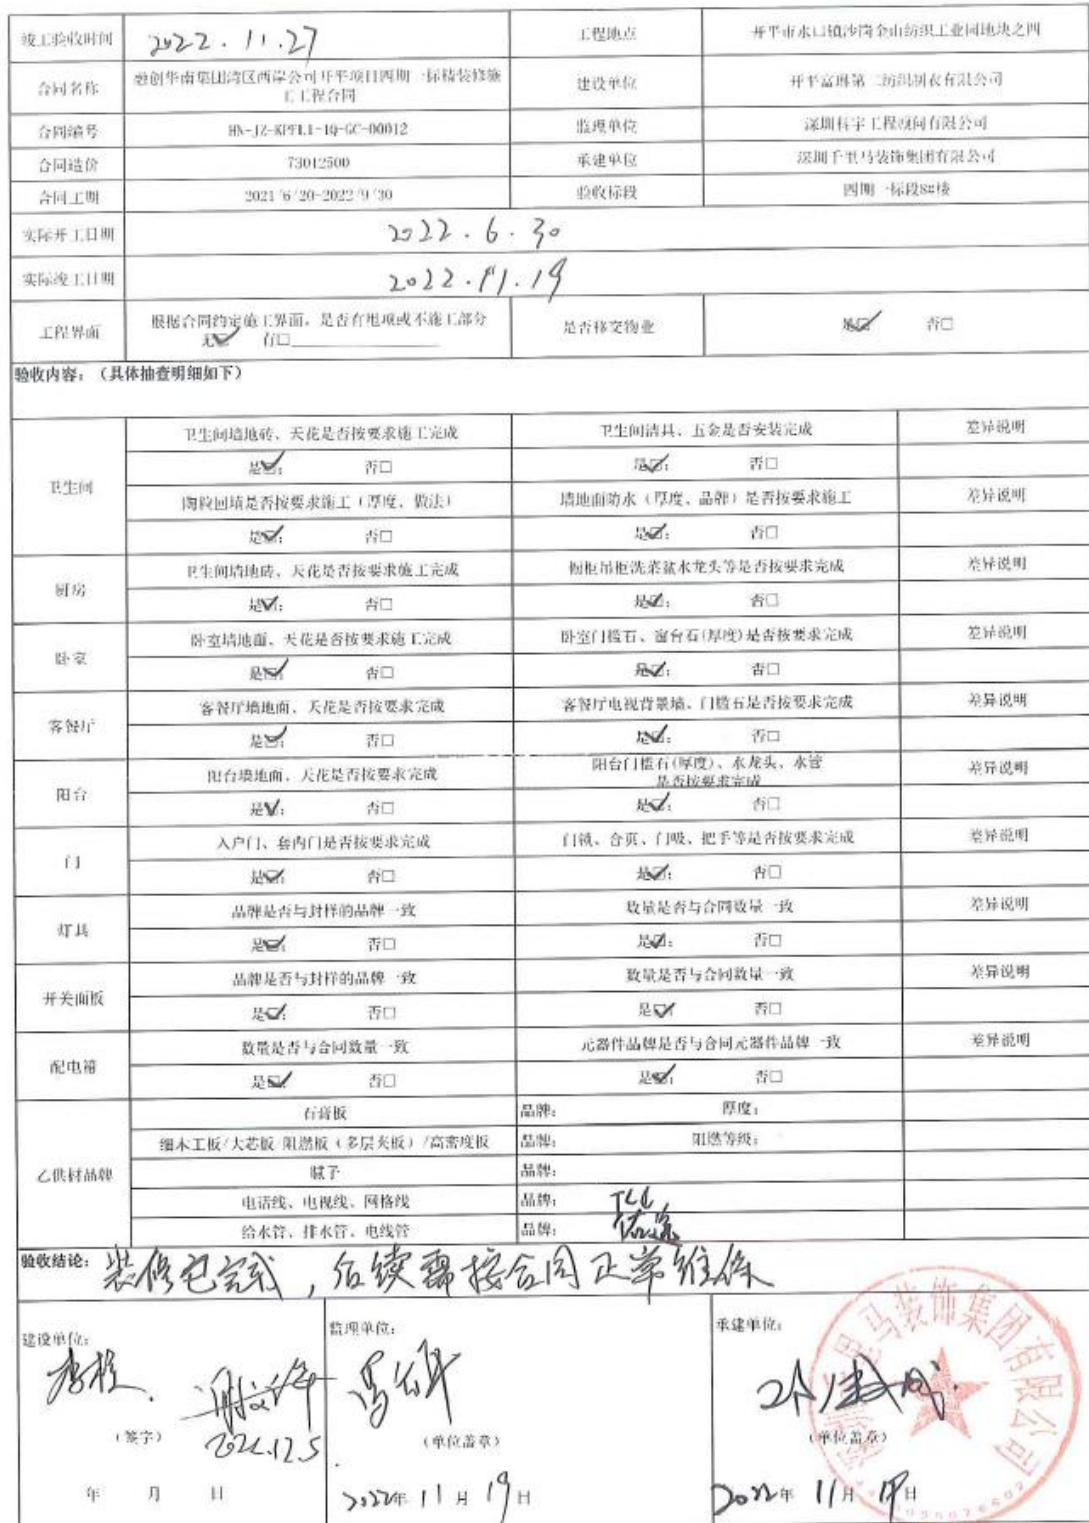 竣工验收时间 2022.11.27 工程地点 开平市水口镇沙岗金山纺织工业园地块之四
合同名称 融创华南集团湾区西岸公司开平项目四期一标精装修施工工程合同 建设单位 开平富琳第二纺织制衣有限公司
合同编号 HN-JZ-KPFL1-1Q-GC-00012 监理单位 深圳科宇工程顾问有限公司
合同造价 73012500 承建单位 深圳千里马装饰集团有限公司
合同工期 2021/6/20-2022/9/30 验收标段 四期一标段8#楼
实际开工日期 2022.6.30
实际竣工日期 2022.11.19
工程界面 根据合同约定施工界面，是否有甩项或不施工部分 是否移交物业 是☑ 否□
无☑ 有□
验收内容：（具体抽查明细如下）
卫生间 卫生间墙地砖、天花是否按要求施工完成 卫生间洁具、五金是否安装完成 差异说明
是☑； 否□ 是☑； 否□
陶粒回填是否按要求施工（厚度、做法） 墙地面防水（厚度、品牌）是否按要求施工 差异说明
是☑； 否□ 是☑； 否□
厨房 卫生间墙地砖、天花是否按要求施工完成 橱柜吊柜洗菜盆水龙头等是否按要求完成 差异说明
是☑； 否□ 是☑； 否□
卧室 卧室墙地面、天花是否按要求施工完成 卧室门槛石、窗台石(厚度)是否按要求完成 差异说明
是☑； 否□ 是☑； 否□
客餐厅 客餐厅墙地面、天花是否按要求完成 客餐厅电视背景墙、门槛石是否按要求完成 差异说明
是☑； 否□ 是☑； 否□
阳台 阳台墙地面、天花是否按要求完成 阳台门槛石(厚度)、水龙头、水管是否按要求完成 差异说明
是☑； 否□ 是☑； 否□
门 入户门、套内门是否按要求完成 门锁、合页、门吸、把手等是否按要求完成 差异说明
是☑； 否□ 是☑； 否□
灯具 品牌是否与封样的品牌一致 数量是否与合同数量一致 差异说明
是☑； 否□ 是☑； 否□
开关面板 品牌是否与封样的品牌一致 数量是否与合同数量一致 差异说明
是☑； 否□ 是☑ 否□
配电箱 数量是否与合同数量一致 元器件品牌是否与合同元器件品牌一致 差异说明
是☑； 否□ 是☑； 否□
乙供材品牌 石膏板 品牌： 厚度：
细木工板/大芯板/阻燃板（多层夹板）/高密度板 品牌： 阻燃等级：
腻子 品牌：
电话线、电视线、网络线 品牌： TCL
给水管、排水管、电线管 品牌：
验收结论：装修已完成，后续需按合同正常维保
建设单位： 监理单位： 承建单位：
（签字） 2022.12.5 （单位盖章） （单位盖章）
年 月 日 2022年11月19日 2022年11月19日
里马装饰集团有限公司